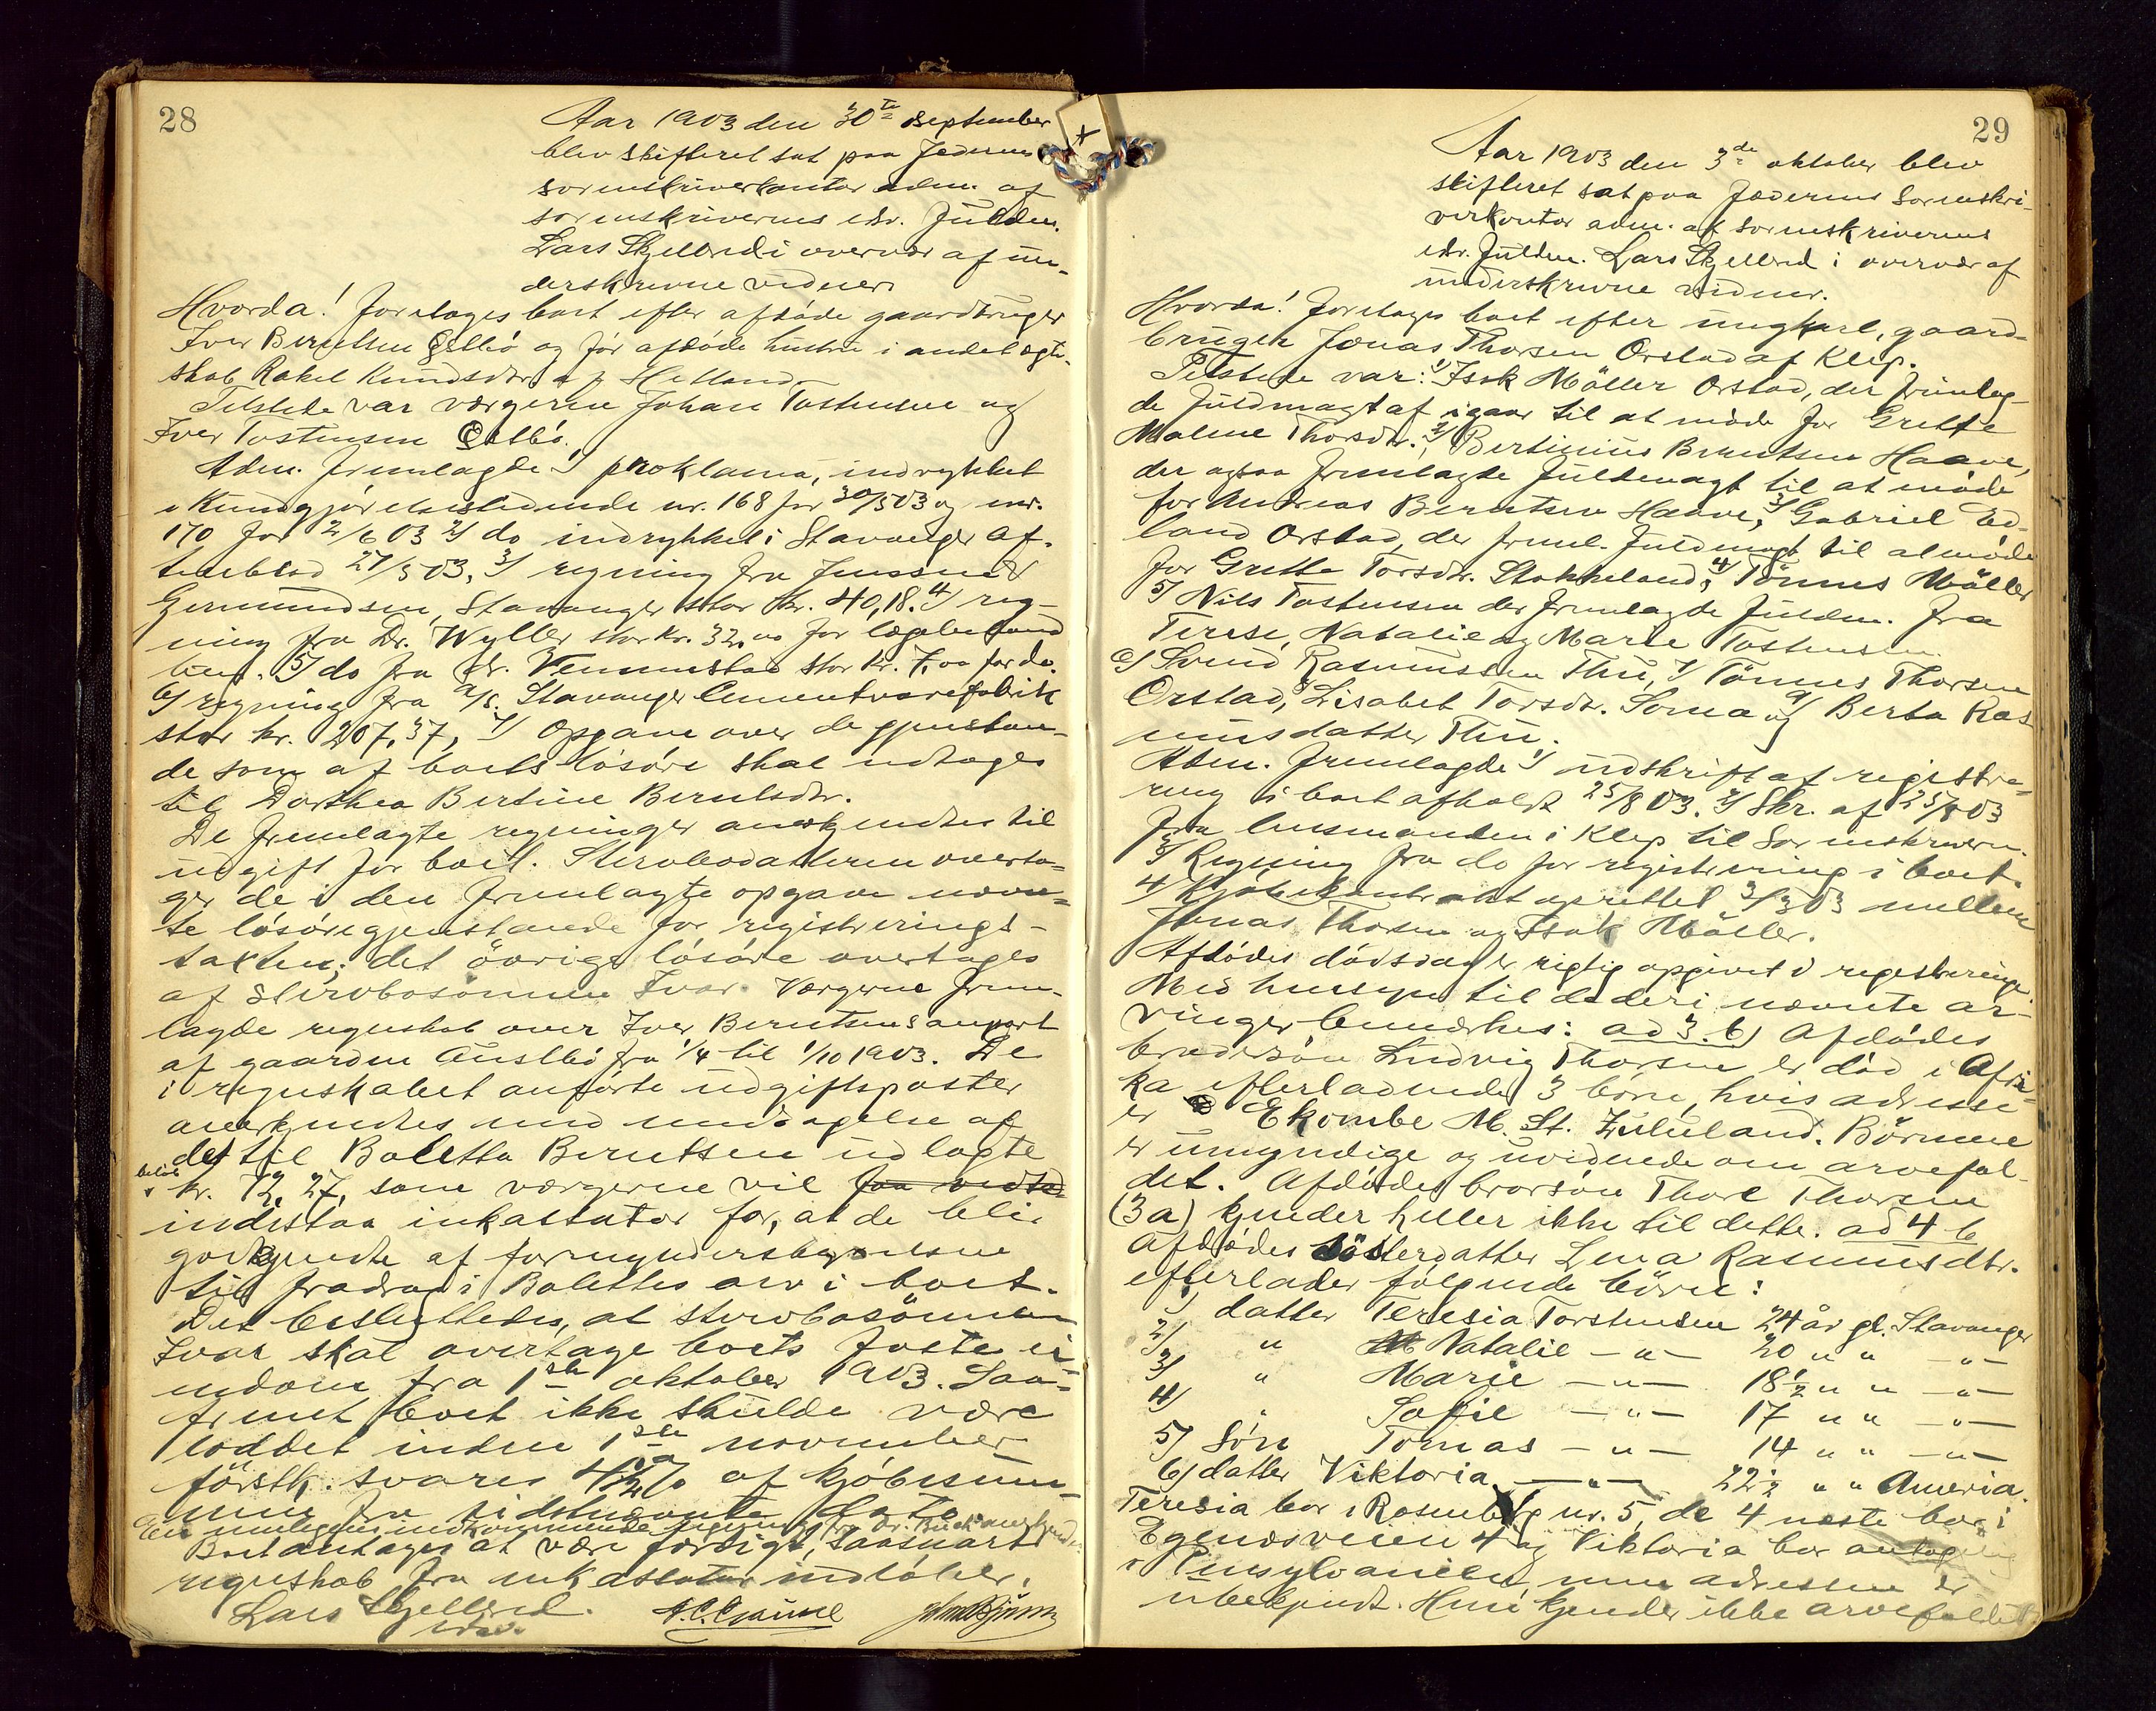 28
Aar 1903 den 30te september
blev skifteret sat paa Jæderens
sorenskriverkontor adm. af
sorenskriverens edsv. fuldm.
Lars Skjelbred i overvær af un-
derskrevne vidner.
Hvorda! Foretoges boet efter afdøde gaardbruger
Iver Berntsen Qelbø og før afdøde hustru i andet ægte-
skab Rakel Knudsdtr. af Helland.
Tilstede var værgerne Johan Tostensen og
Iver Tostensen Qelbø.
Adm. fremlagde 1/ proklama, indrykket
i Kundgjørelsestidende nr. 168 for 30/5 03 og nr.
170 for 2/6 03 2/ do indrykket i Stavanger Af-
tenblad 27/5 03, 3/ regning fra Jenssen &
Germundsen, Stavanger stor kr. 40,18. 4/ reg-
ning fra Dr. Wyller stor kr. 32,00 for lægebehand
ling. 5/ do fra dr. Vennerstad stor kr. 7,00 for do.
6/ regning fra A/S. Stavanger Cementvarefabrik
stor kr. 207,37, 7/ Opgave over de gjenstan-
de som af boets løsøre skal udtages
til Dorthea Bertine Berntsdtr.
De fremlagte regninger anerkjendtes til
udgift for boet. Stervbodatteren overta-
ger de i den fremlagte opgave nævn-
te løsøregjenstande for registrerings-
taxten; det øvrige løsøre overtages
af stervbosønnen Ivar. Værgerne frem-
lagde regnskab over Iver Berntsens anpart
af gaarden Austbø fra 1/4 til 1/10 1903. De
i regnskabet anførte udgiftsposter
anerkjendtes med undtagelse af
det til Boletta Berntsen udlagte
beløb
kr. 12,27, som værgerne vil faa vedta-
indestaa inkassator for, at de bli-
godkjendte af formynderbestyrelsen
til fradrag i Bolettes arv i boet.
Det besluttedes, at stervbosønnen
Ivar skal overtage boets faste ei-
endom fra 1ste oktober 1903. Saa-
fremt boet ikke skulde være
loddet inden 1ste november
førstk. svares 4 1/2 % af kjøbesum-
men fra sidstnævnte dato.
En imidlertid indkommende regning fra Dr. Buch anerkjendtes.
Boet antages at være færdigt, saasnart
regnskab fra inkassator indløber.
Lars Skjelbred.
edsv.
29
Aar 1903 den 3de oktober blev
skifteret sat paa Jæderens Sorenskri-
verkontor adm. af sorenskriverens
edsv. fuldm. Lars Skjelbred i overvær af
underskrevne vidner.
Hvorda! Foretages boet efter ungkarl, gaard-
bruger Jonas Thorsen Orstad af Klep.
Tilstede var: 1/ Isak Möller Orstad, der fremlag-
de fuldmagt af igaar til at møde for Grethe
Malene Thorsdtr. 2/ Bertinius Berntsen Haave,
der ogsaa fremlagde fuldmagt til at møde
for Andreas Berntsen Haave, 3/ Gabriel Ed-
land Orstad, der freml. fuldmagt til at møde
for Grethe Torsdtr. Stokkeland, 4/ Tønnes Möller
5/ Nils Tostensen der fremlagde fuldm. fra
Terese, Natalie og Marie Tostensen.
6/ Svend Rasmussen Thu, 7/ Tønnes Thorsen
Orstad, 8/ Lisabet Torsdtr. Soma og 9/ Berta Ras-
musdatter Thu.
Adm. fremlagde 1/ udskrift af registre-
ring i boet afholdt 25/8 03. 2/ Skr. af 25/8 03
fra lensmanden i Klep til Sorenskriveren.
3/ Regning fra do for registrering i boet.
4/ Kjøbekontrakt oprettet 3/3 03 mellem
Jonas Thorsen og Isak Möller.
Afdødes dødsdag er rigtig opgivet i registreringen.
Med hensyn til de deri nævnte ar-
vinger bemærkes: ad 3. b) Afdødes
brodersøn Ludvig Thorsen er død i Afri-
ka efterladende 3 børn, hvis adresse
er Ekombe M. St. Zululand. Børnene
er umyndige og uvidende om arvefal-
det. Afdødes brorsøn Thore Thorsen
(3a) kjender heller ikke til dette. ad 4 b
Afdødes søsterdatter Lena Rasmusdtr.
efterlader følgende børn:
1/ datter Teresia Torstensen 24 år gl. Stavanger
2/ " Natalie — " — 20 " " — " —
3/ " Marie — " — 18 1/2 " " — " —
4/ " Sofie — " — 17 " " — " —
5/ Søn Tomas — " — 14 " " — " —
6/ datter Viktoria — " — 22 1/2 " " America.
Teresia bor i Rosenberg nr. 5, de 4 næste bor i
Egenæsveien 4 og Viktoria bor antagelig
i Pensylvanien, men adressen er
ubekjendt. Hun kjender ikke arvefaldet